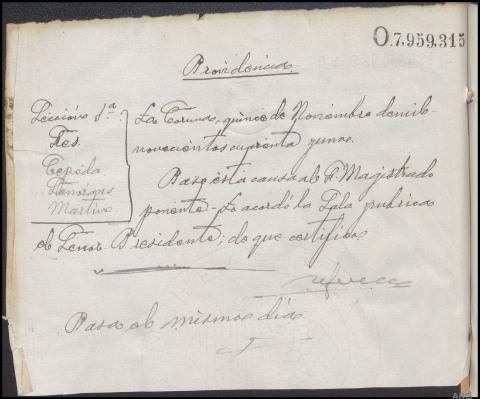 O.7.959.315
Providencia
Sección 1ª
Sres.
Cepeda
Martin
La Coruna, quince de Noviembre de mil
novecientos cuarenta y uno.
Pase esta causa al Sr. Magistrado
ponente. Lo acordó la Sala y rubrica
el Señor Presidente; de que certifico
Pasa el mismo día